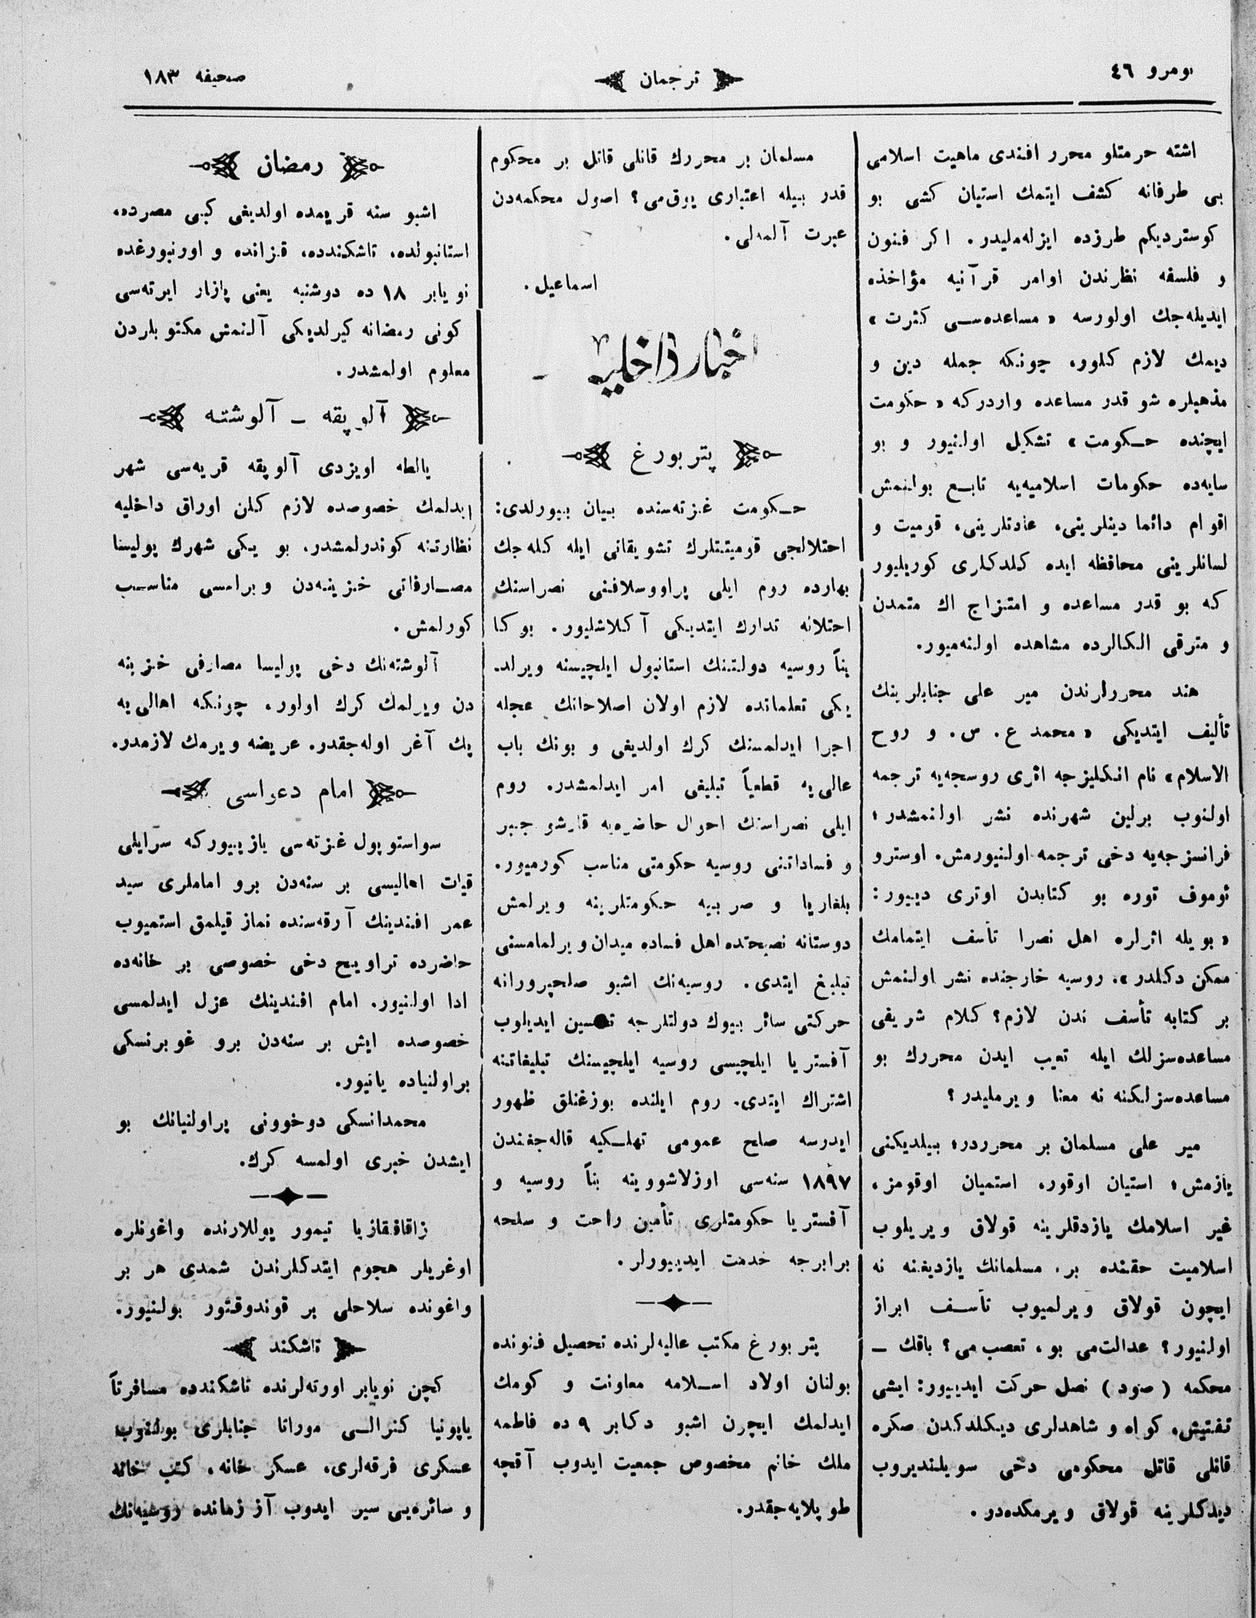 نومرو ٤٦
ترجمان
صحیفه ١٨٣
اشته حرمتلو محرر افندی ماهیت اسلامی
بی طرفانه كشف ایتمك استیان كشی بو
كوستردیكم طرزده ایزله‌ملیدر. اكر فنون
و فلسفه نظرندن اوامر قرآنیه مؤاخذه
ایدیله‌جك اولورسه «مساعده‌سی كثرت»
دیمك لازم كلور، چونكه جمله دین و
مذهبلره شو قدر مساعده واردركه «حكومت
ایچنده حكومت» تشكیل اولنیور و بو
سایه‌ده حكومات اسلامیه‌یه تابع بولنمش
اقوام دائما دینلرینی، عادتلرینی، قومیت و
لسانلرینی محافظه ایده كلدكلری كوریلیور
كه بو قدر مساعده و امتزاج اك متمدن
و مترقی الكالرده مشاهده اولنه‌میور.
هند محررلرندن میر علی جنابلرینك
تألیف ایتدیكی «محمد ع. س. و روح
الاسلام» نام انكلیزجه اثری روسجه‌یه ترجمه
اولنوب برلین شهرنده نشر اولنمشدر؛
فرانسزجه‌یه دخی ترجمه اولنیورمش. اوسترو
ئوموف توره بو كتابدن اوتری دییور:
«بویله اثرلره اهل نصرا تأسف ایتمامك
ممكن دكلدر». روسیه خارجنده نشر اولنمش
بر كتابه تأسف ندن لازم؟ كلام شریفی
مساعده‌سزلك ایله تعیب ایدن محررك بو
مساعده‌سزلیكنه نه معنا ویرملیدر؟
میر علی مسلمان بر محرردر؛ بیلدیكنی
یازمش؛ استیان اوقور، استمیان اوقومز،
غیر اسلامك یازدقلرینه قولاق ویریلوب
اسلامیت حقنده بر مسلمانك یازدیغنه نه
ایچون قولاق ویرلمیوب تأسف ابراز
اولنیور؟ عدالت‌می بو، تعصب می؟ باقك ـ
محكمه (صود) نصل حركت ایدییور: ایشی
تفتیش، كواه و شاهدلری دیكلدكدن صكره
قانلی قاتل محكومی دخی سویلندیروب
دیدكلرینه قولاق ویرمكده‌دو.
مسلمان بر محررك قانلی قاتل بر محكوم
قدر بیله اعتباری یوق‌می؟ اصول محكمه‌دن
عبرت آلمه‌لی.
اسماعیل.
اخبار داخلیه
پتربورغ
حكومت غزته‌سنده بیان بیورلدی:
احتلالجی قومیتتلرك تشویقاتی ایله كله‌جك
بهارده روم ایلی پراووسلاقنی نصراسنك
احتلانه تدارك ایتدیكی آكلاشلیور. بوكا
بناً روسیه دولتنك استانبول ایلچیسنه ویرلد
یكی تعلماتده لازم اولان اصلاحاتك عجله
اجرا ایدلمسنك كرك اولدیغی و بونك باب
عالی‌یه قطعیاً تبلیغی امر ایدلمشدر. روم
ایلی نصراسنك احوال حاضره‌یه قارشو جبر
و فساداتنی روسیه حكومتی مناسب كورمیور.
بلغاریا و صربیه حكومتلرینه ویرلمش
دوستانه نصیحتده اهل فساده میدان ویرلمامسنی
تبلیغ ایتدی. روسیه‌نك اشبو صلحپرورانه
حركتی سائر بیوك دولتلرجه تحسین ایدیلوب
آفستریا ایلچیسی روسیه ایلچیسنك تبلیغاتنه
اشتراك ایتدی. روم ایلنده بوزغنلق ظهور
ایدرسه صلح عمومی تهلكیه قاله‌جغندن
١٨٩٧ سنه‌سی اوزلاشووینه بناً روسیه و
آفستریا حكومتلری تأمین راحت و سلحه
برابرجه خدمت ایدییورلر.
پتربورغ مكتب عالیه‌لرنده تحصیل فنونده
بولنان اولاد اسلامه معاونت و كومك
ایدلمك ایچون اشبو دكابر ٩ ده فاطمه
ملك خانم مخصوص جمعیت ایدوب آقچه
طوپلایه‌جقدر.
رمضان
اشبو سنه قریمده اولدیغی كبی مصرده،
استانبولده، تاشكندده، قزانده و اورنبورغده
نویابر ١٨ ده دوشنبه یعنی پازار ایرته‌سی
كونی رمضانه كیرلدیكی آلنمش مكتوبلردن
معلوم اولمشدر.
آلوپقه ـ آلوشته
یالطه اویزدی آلوپقه قریه‌سی شهر
ایدلمك خصوصده لازم كلن اوراق داخلیه
نظارتنه كوندرلمشدر. بو یكی شهرك پولیسا
مصارفاتی خزینه‌دن ویرلمسی مناسب
كورلمش.
آلوشته‌نك دخی پولیسا مصارفی خزینه
دن ویرلمك كرك اولور، چونكه اهالی‌یه
پك آغر اوله‌جقدر. عریضه ویرمك لازمدر.
امام دعواسی
سواستوپول غزته‌سی یازییوركه سرایلی
قیات اهالیسی بر سنه‌دن برو اماملری سید
عمر افندینك آرقه‌سنده نماز قیلمق استمیوب
حاضرده تراویح دخی خصوصی بر خانه‌ده
ادا اولنیور. امام افندینك عزل ایدلمسی
خصوصده ایش بر سنه‌دن برو غوبرنسكی
پراولنیاده یاتیور.
محمدانسكی دوخوونی پراولنیانك بو
ایشدن خبری اولمسه كرك.
زاقافقازیا تیمور یوللارنده واغونلره
اوغریلر هجوم ایتدكلرندن شمدی هر بر
واغونده سلاحلی بر قوندوقتور بولنیور.
تاشكند
كچن نویابر اورته‌لرنده تاشكندده مسافرتاً
یاپونیا كنرالی موراتا جنابلری بولنوب
عسكری فرقه‌لری، عسكر خانه، كتب خانه
و سائره‌یی سیر ایدوب آز زمانده روسیه‌نك